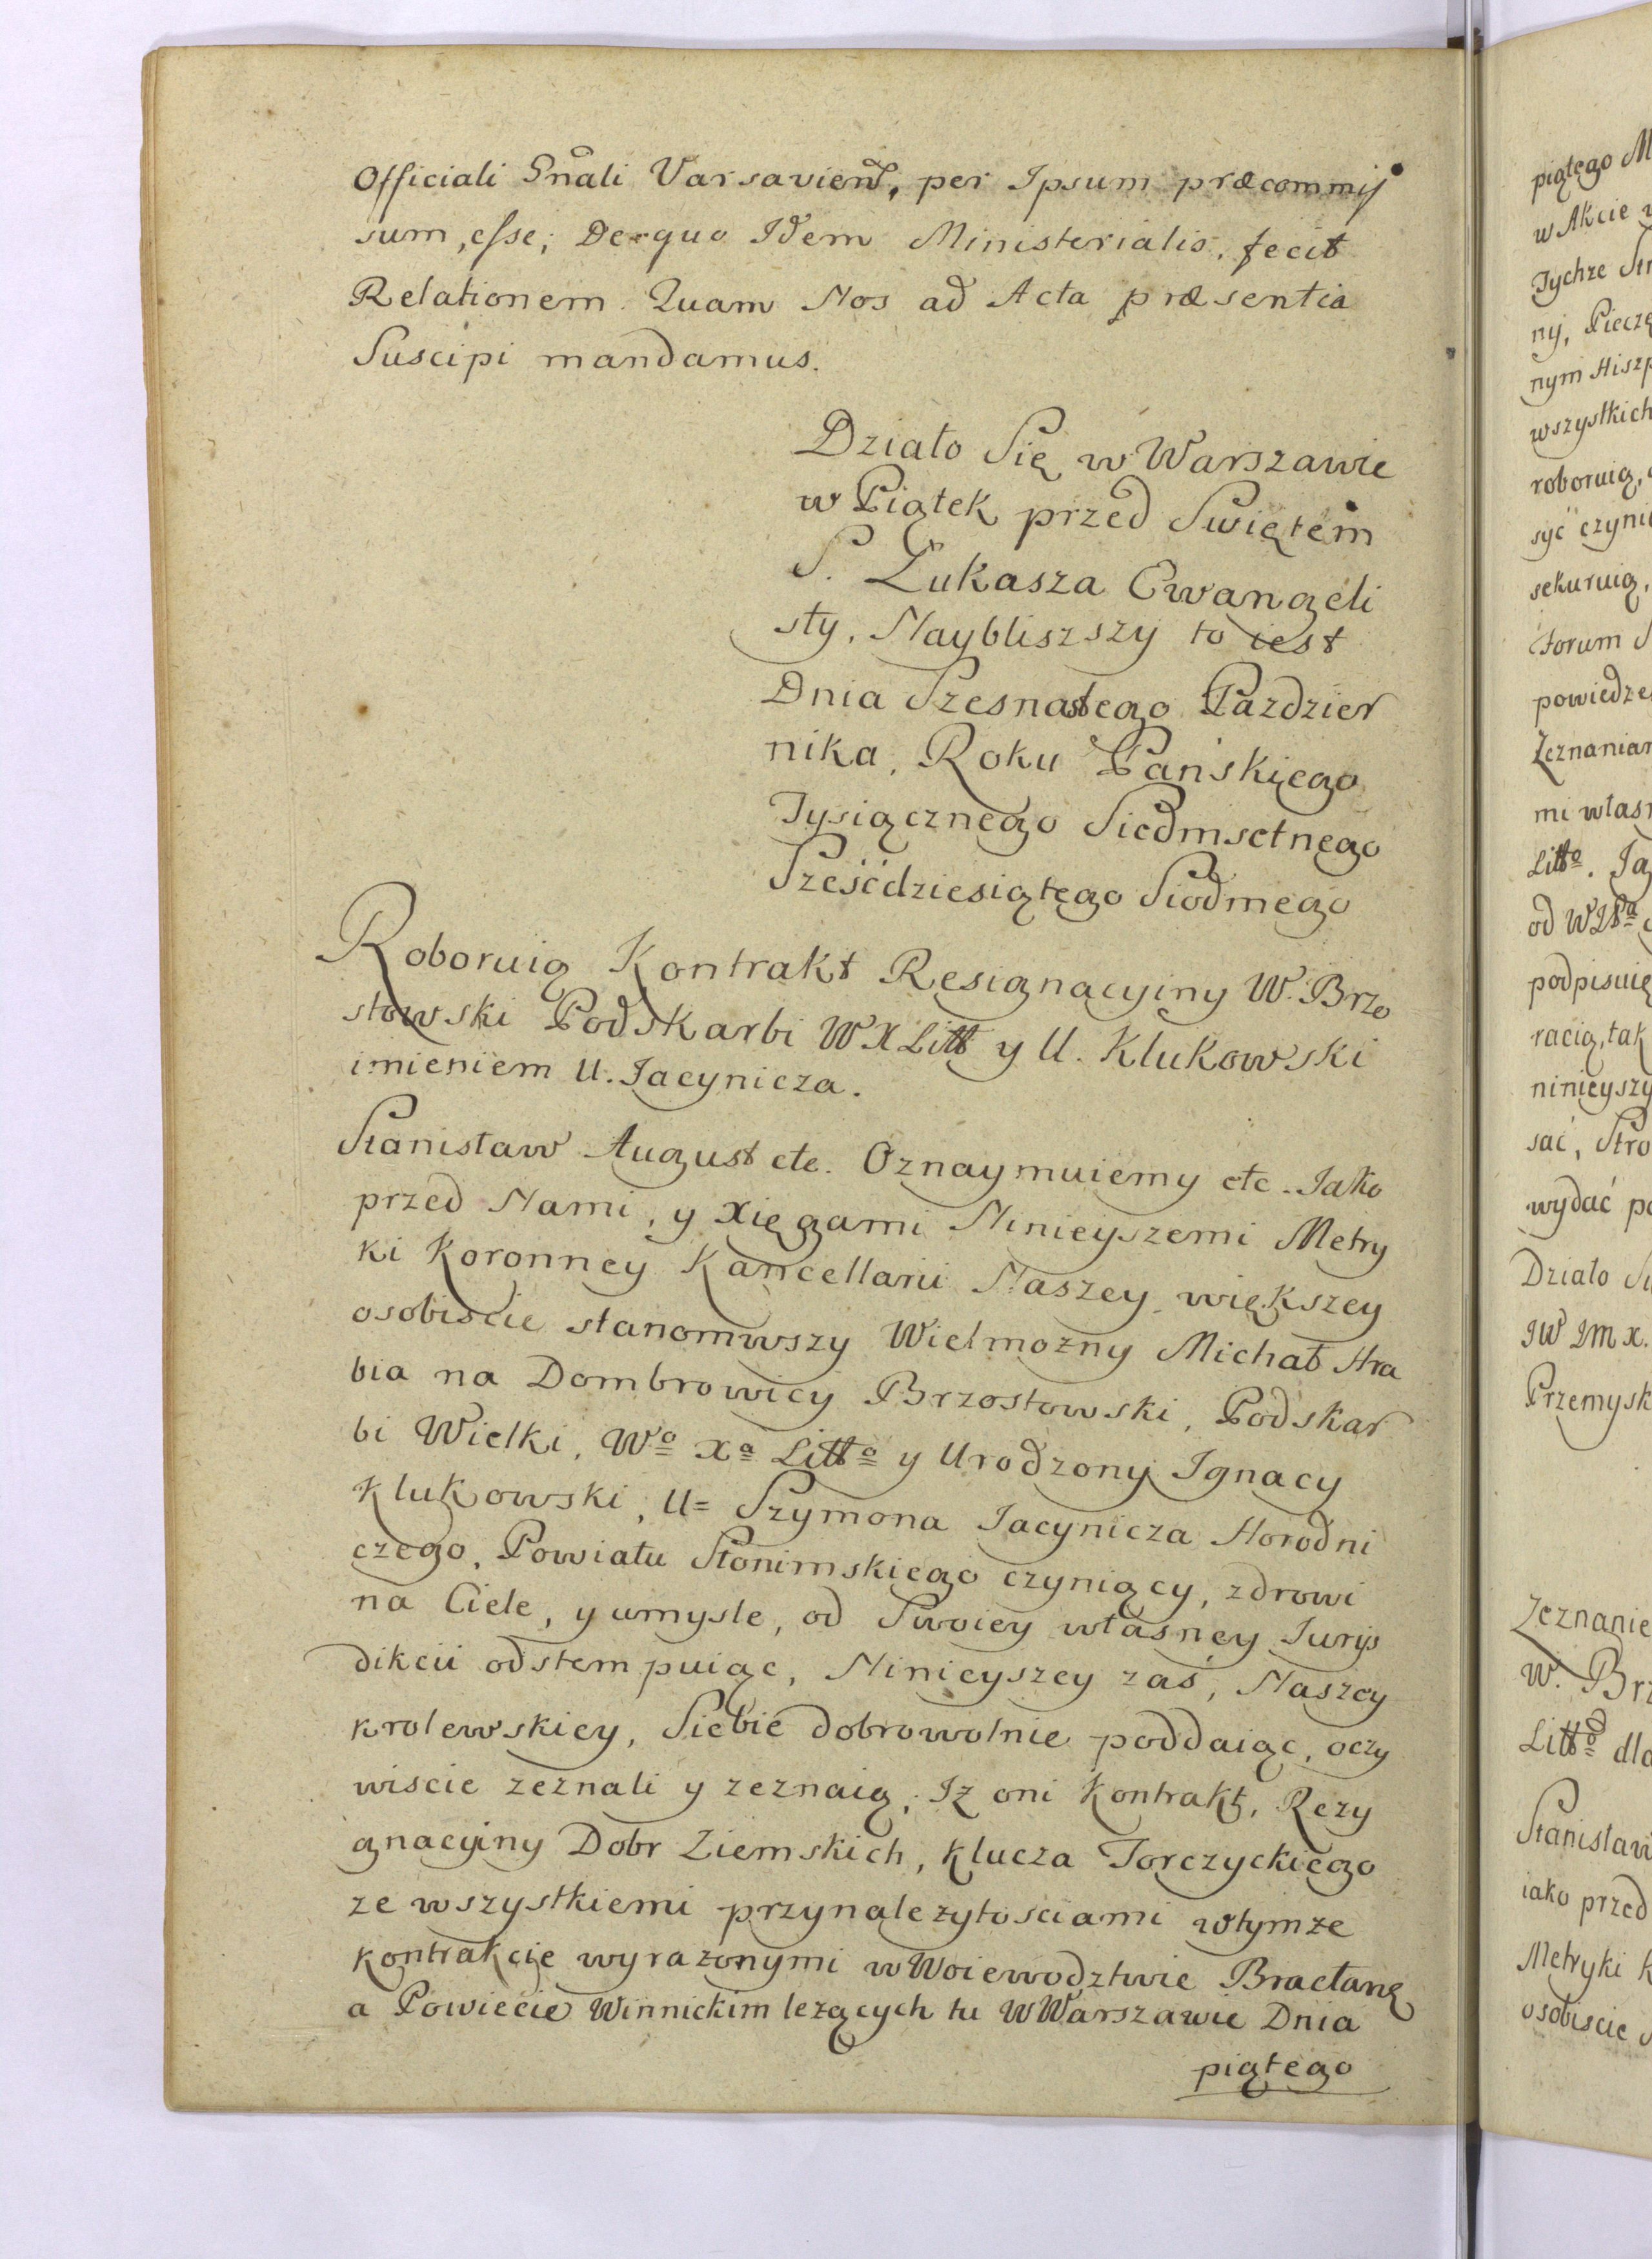 Officiali Gnâli Varsavien̄, per Ipsum præcommis
sum, esse; De quo Idem Ministerialis, fecit
Relationem. Quam Nos ad Acta præsentia
Suscipi mandamus.
Działo Się w Warszawie
w Piątek przed Swiętem
S. Łukasza Ewangeli
sty, Naybliszszy to iest
Dnia Szesnastego Pazdzier
nika, Roku Pańskiego
Tysiącznego Siedmsetnego
Sześćdziesiątego Siodmego
Roboruią Kontrakt Resignacyiny W. Brzo
stowski Podskarbi WX Litt y U. Klukowski
imieniem U. Jacynicza.
Stanisław August etc. Oznaymuiemy etc. Jako
przed Nami, y Xięgami Ninieyszemi Metry
ki Koronney Kancellarii Naszey większey
osobiscie stanowwszy Wielmozny Michał Hra
bia na Dombrowicy Brzostowski, Podskar
bi Wielki, Wº Xª Littº y Urodzony Ignacy
Klukowski, U= Szymona Jacynicza Horodni
czego, Powiatu Słonimskiego czyniący, zdrowi
na Ciele, y umysle, od Swoiey własney Jurys
dikcii odstempuiąc, Ninieyszey zaś, Naszey
krolewskiey, Siebie dobrowolnie poddaiąc, oczy
wiscie zeznali y zeznaią, Iz oni Kontrakt, Rezy
gnacyiny Dobr Ziemskich, Klucza Torczyckiego
ze wszystkiemi przynalezytosciami wtymze
kontrakcie wyrazonymi w Woiewodztwie Bracłanę
a Powiecie Winnickim lezących tu w Warszawie Dnia
piątego
piątego M
w Akcie
Tychze Str
ny, Pieczę
nym Hiszp
wszystkich
roboruią,
syć czyni
sekuruią,
Forum
powiedze
Zeznaniar
mi własn
Littº. Ja
od
podpisuię
racią, tak
ninieyszy
sać, Stro
wydać po
Działo Si
JW JM X.
Przemysk
Zeznanie
W. Brz
Littº dla
Stanisław
iako przed
Metryki K
osobiscie